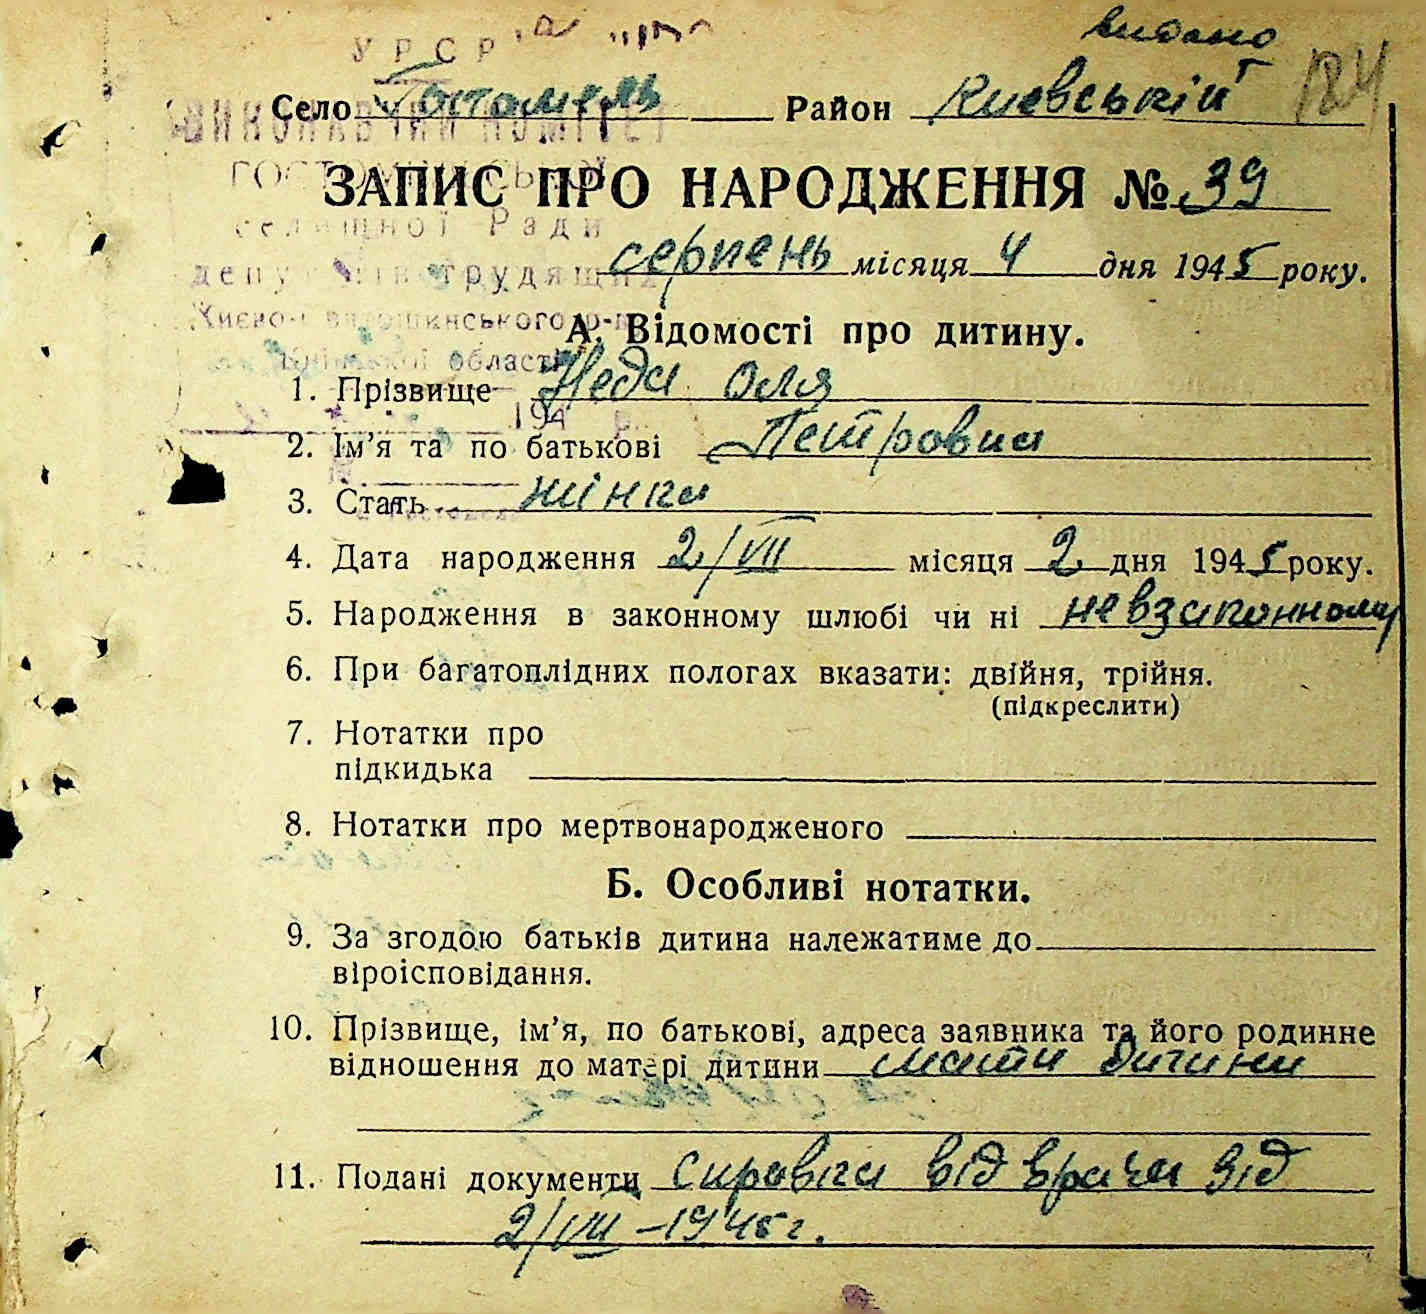 видано
УРСР
184
Село Гостомель Район Киевський
ВИКОНАВЧИЙ КОМІТЕТ
ГОСТОМЕЛЬСЬКОЇ
ЗАПИС ПРО НАРОДЖЕННЯ № 39
селищної Ради
серпень місяця 4 дня 1945 року.
депутатів трудящих
області
А. Відомості про дитину.
1. Прізвище Неда Оля
194 р.
2. Ім'я та по батькові Петровна
3. Стать жінка
4. Дата народження 2/VII місяця 2 дня 1945 року.
5. Народження в законному шлюбі чи ні невзаконному
6. При багатоплідних пологах вказати: двійня, трійня.
(підкреслити)
7. Нотатки про
підкидька
8. Нотатки про мертвонародженого
Б. Особливі нотатки.
9. За згодою батьків дитина належатиме до
віроісповідання.
10. Прізвище, ім'я, по батькові, адреса заявника та його родинне
відношення до матері дитини мати дитини
11. Подані документи справка від врача від
2/VII - 1945 г.